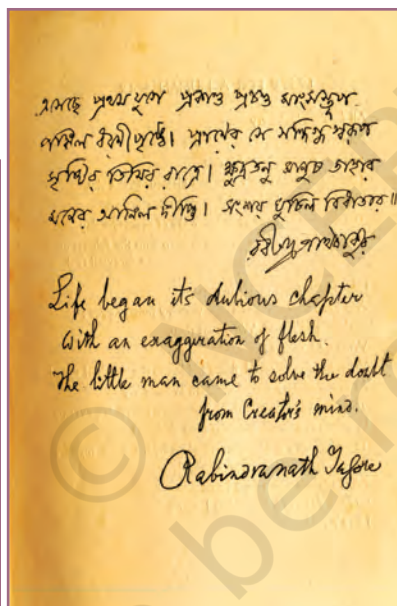 এসেছে প্রথম যুগে প্রকাণ্ড প্রচণ্ড মাংসস্তূপ
পঙ্কিল ধরণীপৃষ্ঠে। প্রাণের সে সন্দিগ্ধ স্বরূপ
সৃষ্টির তিমির রাত্রে। ক্ষুদ্রতনু মানুষ তাহার
মনের আনিল দীপ্তি। সংশয় ঘুচিল বিধাতার॥
রবীন্দ্রনাথ ঠাকুর
Life began its dubious chapter
with an exaggeration of flesh.
The little man came to solve the doubt
from Creator's mind.
Rabindranath Tagore
© NCERT
be re